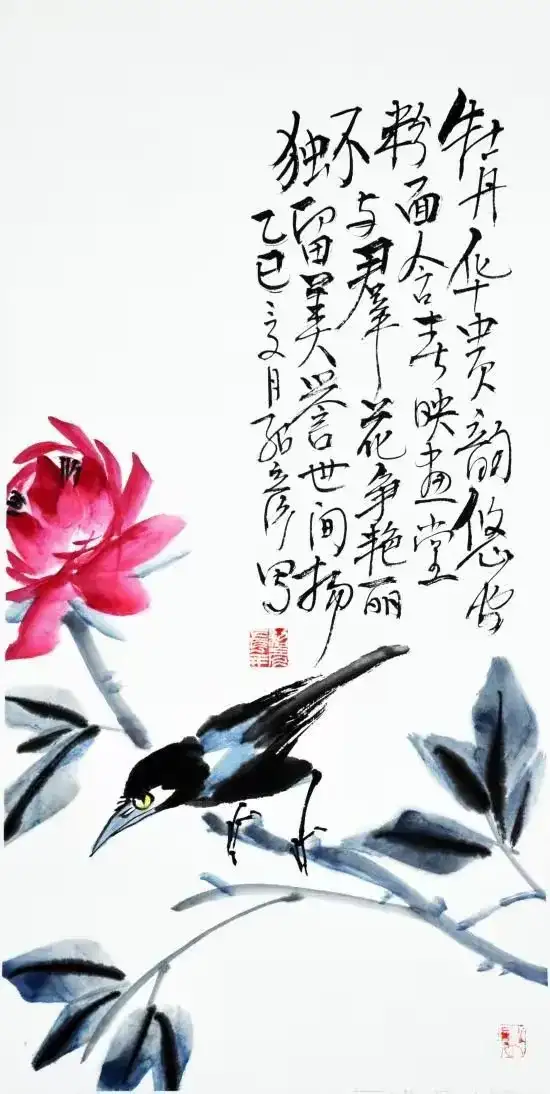 牡丹华贵韵悠长
粉面含春映画堂
不与羣花争艳丽
独留美誉世间扬
乙巳夏月彦写